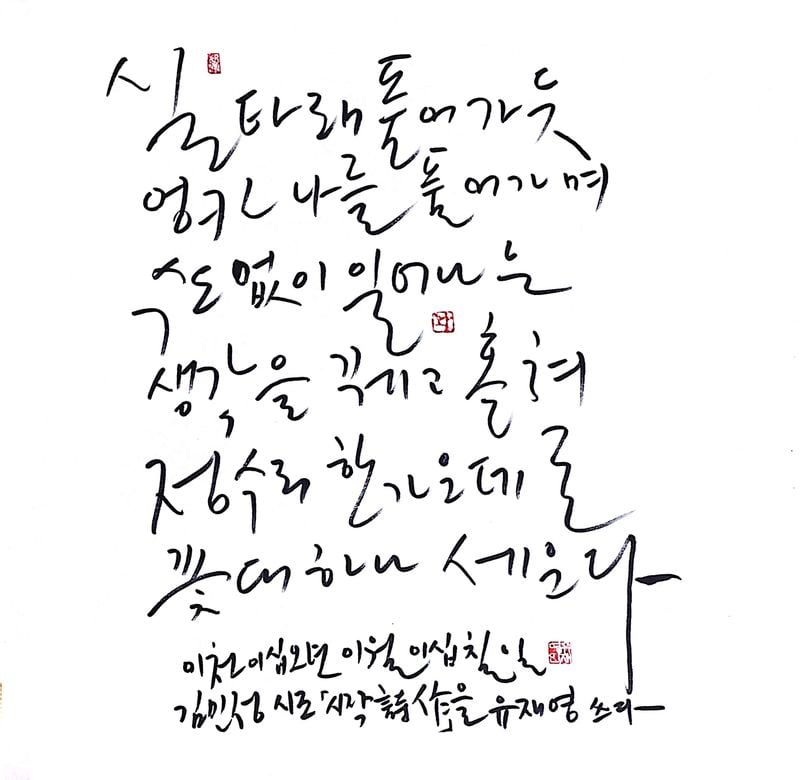 실타래 풀어가듯
엉킨 나를 품어가며
수도 없이 일어나는
생각을 꿰고 홀쳐
정수리 한가운데로
꽃대 하나 세운다
이천이십오년 이월 이십칠일
김민정 시조 「시작詩作」을 유재영 쓰다